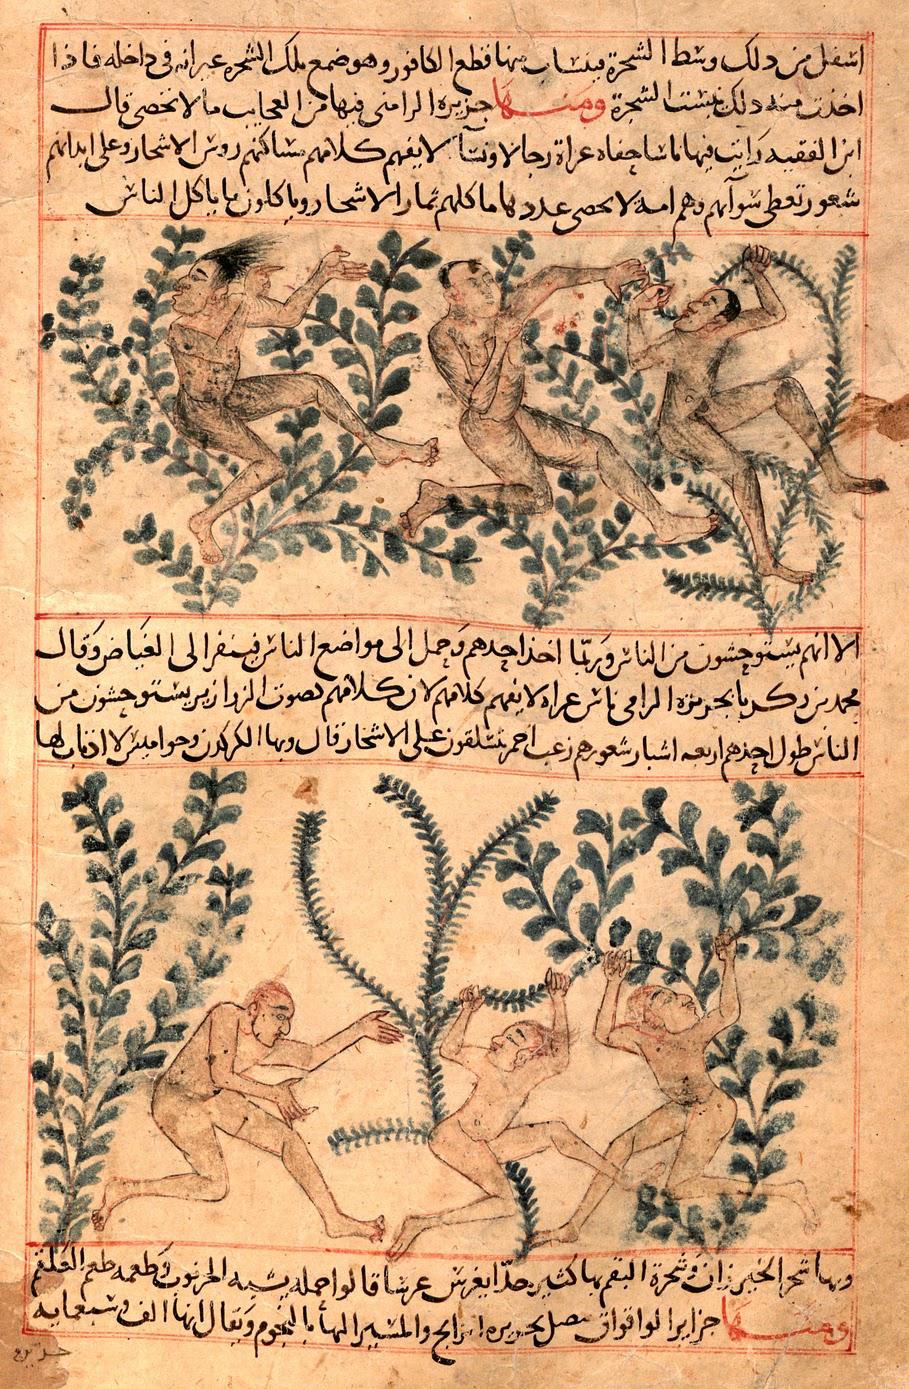 اسفل من ذلك وسط الشجرة فينساب منها قطع الكافور وهو ضمغ تلك الشجرة غير انه فى داخله فاذا
اخذت منه ذلك يبست الشجرة ومنها جزيرة الرامنى فيها من العجايب ما لا تحصى قال
ابن الفقيه رايت فيها ناسا حفاه عراة رجالا ونسآ لا يفهم كلامهم مساكنهم روس الاشجار وعلى ابدانهم
شعور تغطى سوآتهم وهم امة لا يحصى عددها ماكلهم ثمار الاشجار وياكلون ما ياكل الناس
الا انهم يستوحشون من الناس وربما اخذ احدهم وحمل الى مواضع الناس فينفر الى الغياض وقال
محمد بن زكريا بجزيرة الرامى ناس عراة لا يفهم كلامهم لان كلامهم يصوت الزرازير يستوحشون من
الناس طول احدهم اربعه اشبار شعورهم زغب احمر يتسلقون على الاشجار قال وبها الكركدن وحواميس لا اذناب لها
وبها شجر الخيزران وشجرة البقم بها كثير جدا يغرس غرسا قالوا حمله يشبه الخرنوب وطعمه طعم العلقم
ومنها جزاير الواقواق متصل بجزيره الزابج والمسير اليها بالنجوم ويقال انها الف وسبعمايه
جزيره